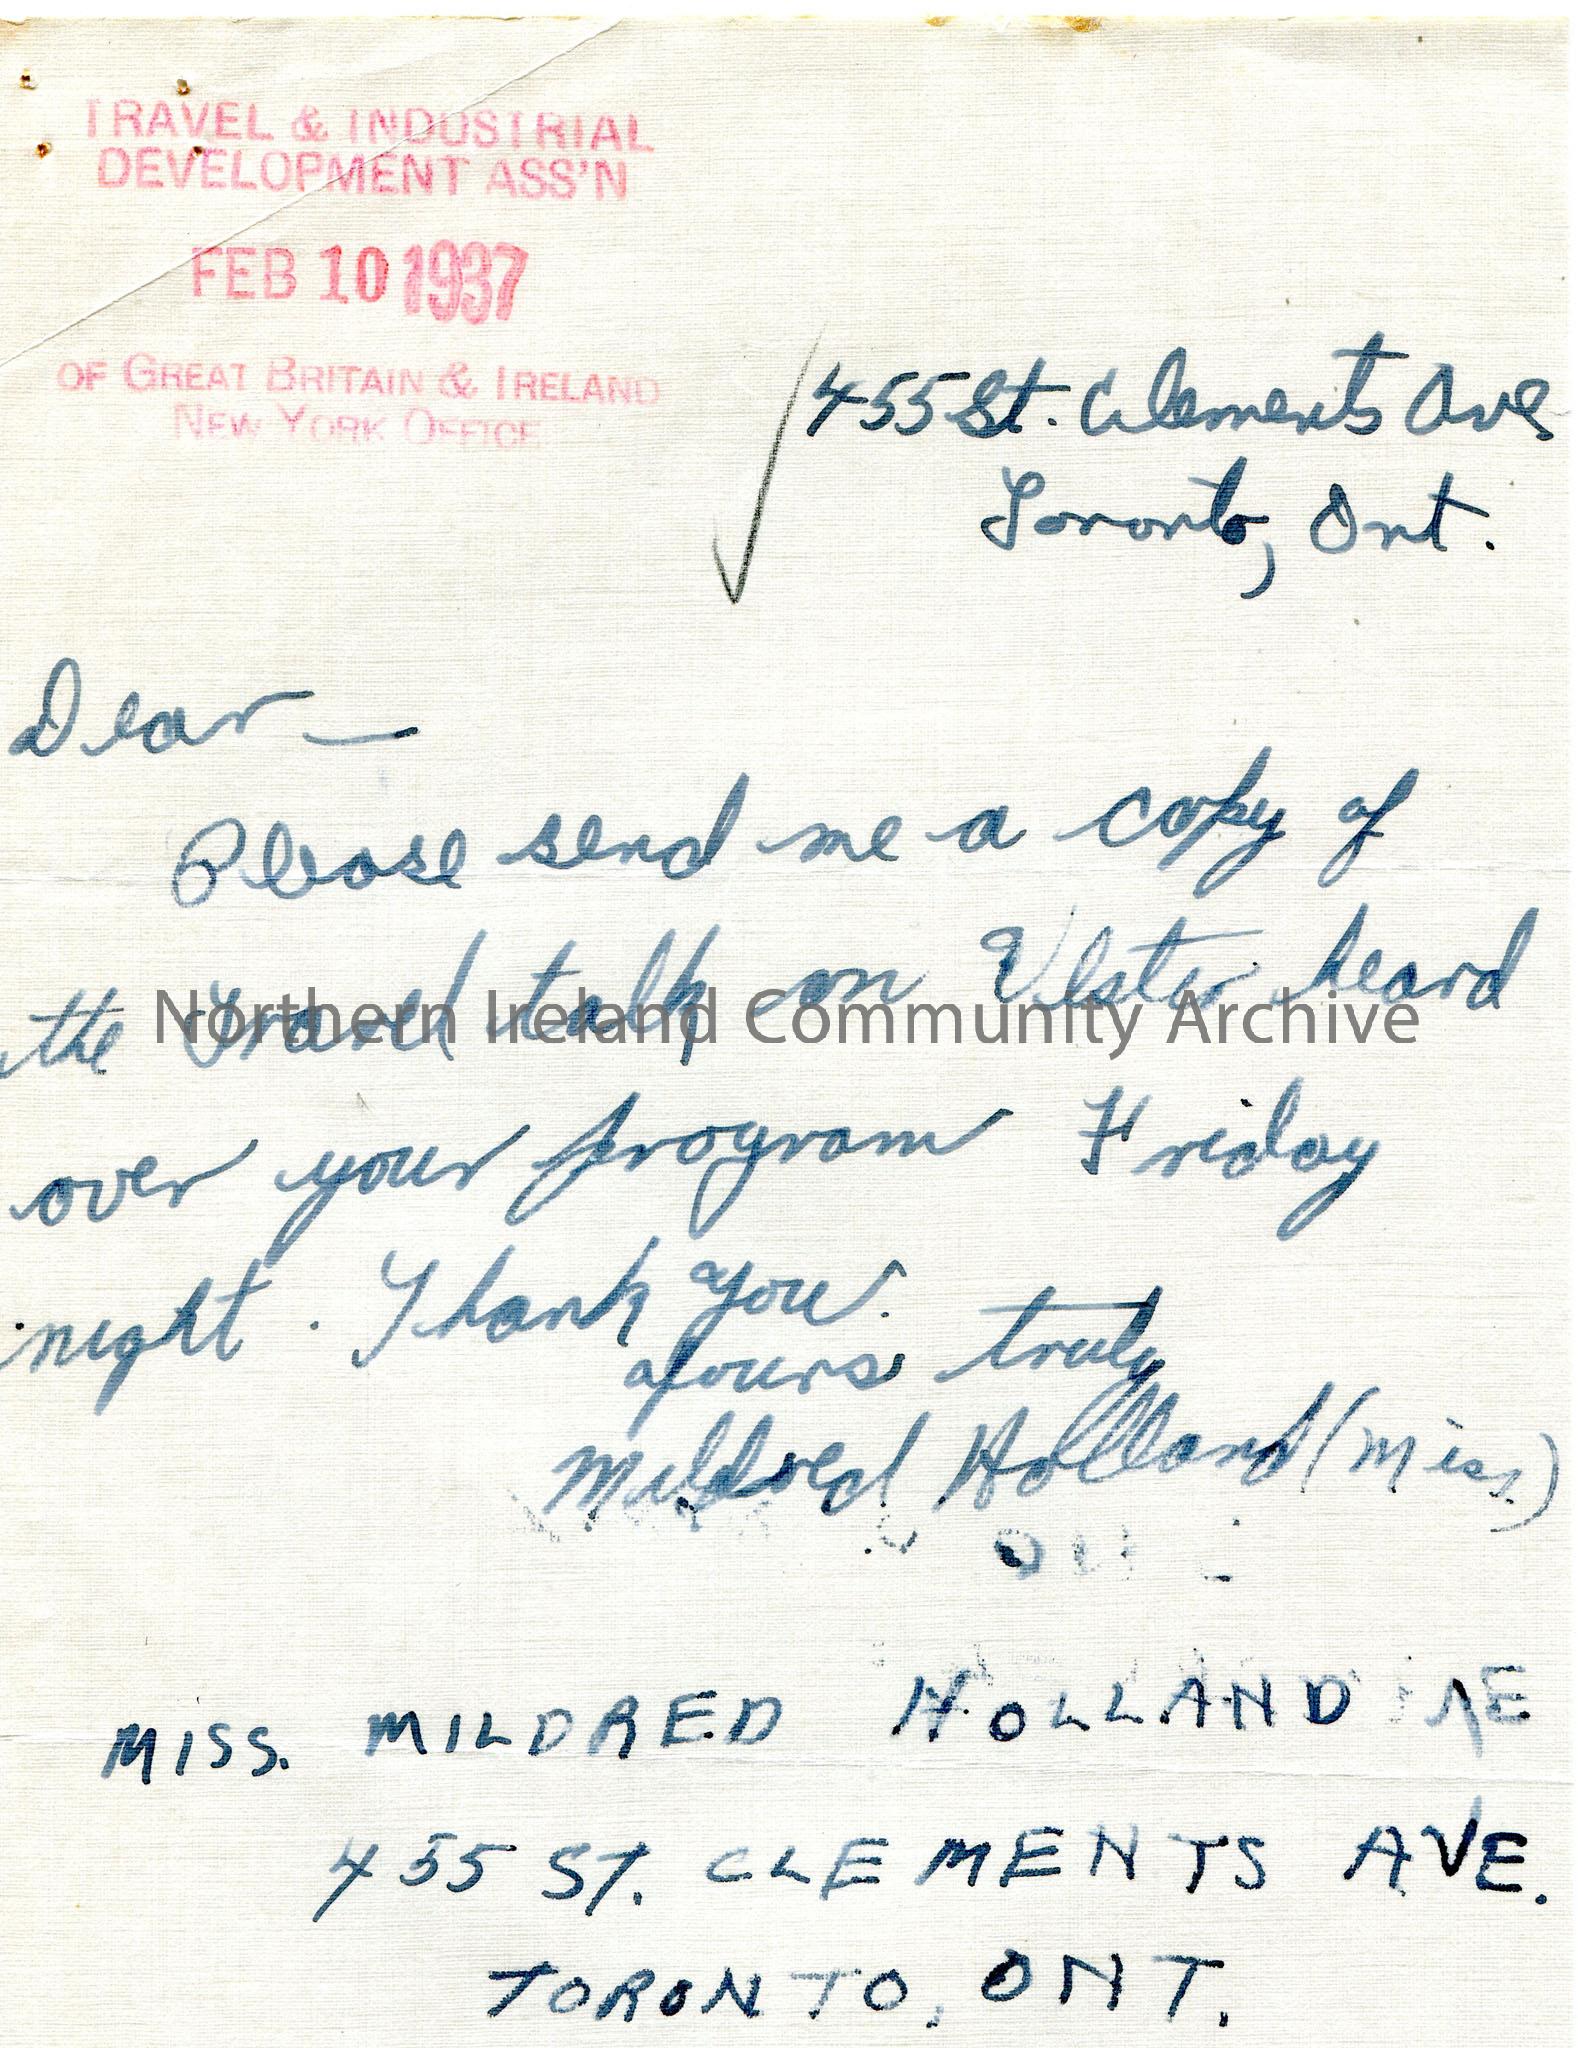 TRAVEL & INDUSTRIAL
DEVELOPMENT ASS'N
FEB 10 1937
OF GREAT BRITAIN & IRELAND
NEW YORK OFFICE
455 St. Clements Ave
Toronto, Ont.
Dear —
Please send me a copy of
the Travel talk on Ulster heard
Northern Ireland Community Archive
over your program Friday
night. Thank you.
yours truly
Mildred Holland (Miss.)
MISS. MILDRED HOLLAND
455 ST. CLEMENTS AVE.
TORONTO, ONT.